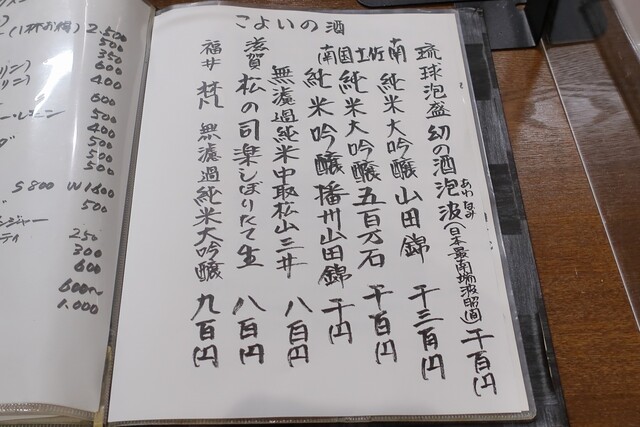 こよいの酒
琉球泡盛 幻の酒 泡波(日本最南端波照間) 千百円
あわなみ
南国土佐 南
純米大吟醸 山田錦 千三百円
純米大吟醸 五百万石 千百円
純米吟醸 播州山田錦 千円
無濾過純米中取松山三井 八百円
滋賀 松の司 楽 しぼりたて生 八百円
福井 梵 無濾過純米大吟醸 九百円
2,500
500
350
600
400
600
500
400
500
500
S800 W1600
500
ンジャー
ティ 250
300
600
600〜
1.000